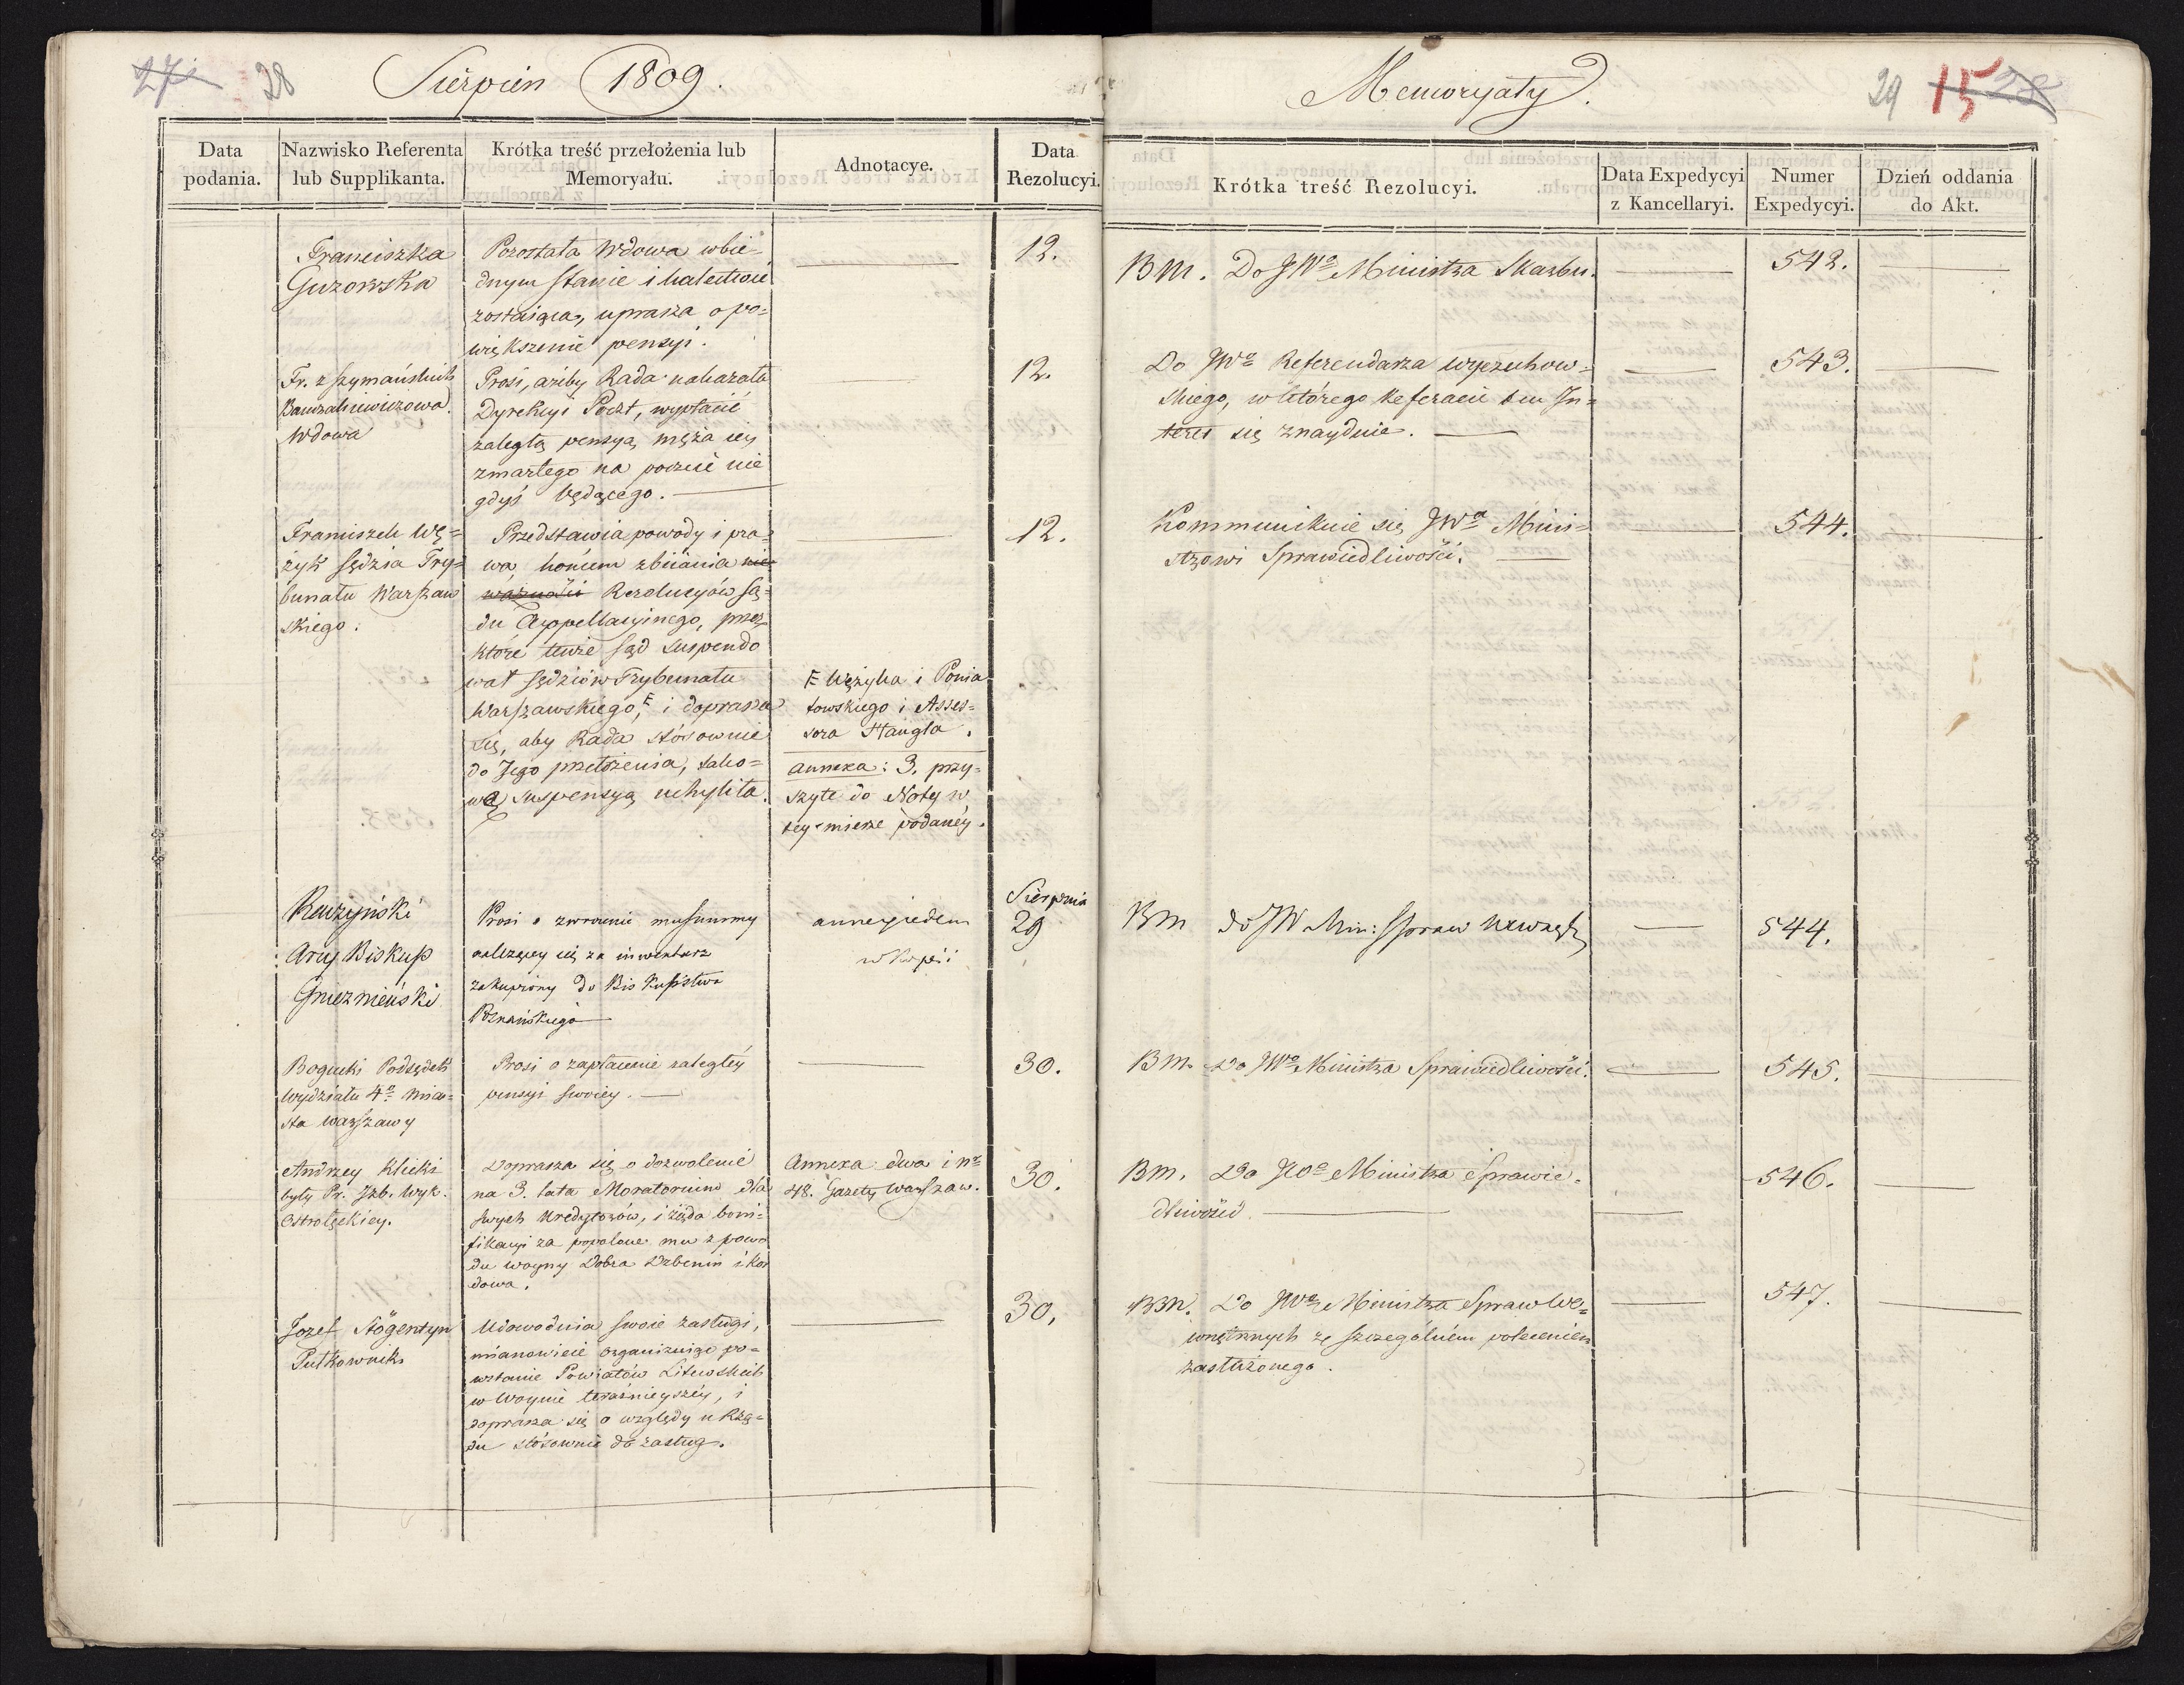 27 28 Sierpien 1809.
Memoryały.
29 15 28
Data podania.
Nazwisko Referenta lub Supplikanta.
Krótka treść przełożenia lub Memoryału.
Adnotacye.
Data Rezolucyi.
Krótka treść Rezolucyi.
Data Expedycyi z Kancellaryi.
Numer Expedycyi.
Dzień oddania do Akt.
Franciszka
Guzowska
Pozostała Wdowa w bie-
dnym stanie i kalectwie
zostaiąca, uprasza o po=
większenie pensyi.
12.
BM. Do JWo Ministra Skarbu.
542.
Fr. z Szymańskich
Wdowa
Prosi, ażeby Rada nakazała
Dyrekcyi Poczt, wypłacić
zaległą pensyą męża iéy
zmarłego na poczcie nie
gdyś będącego.
12.
Do JWo Referendarza Wyczechow=
skiego, w którego Referacie ten In=
teres się znayduie.
543.
Franciszek Wę=
żyk Sędzia Try=
bunału Warszaw
skiego.
Przedstawia powody i pra=
wa, końcem zbiiania nie
ważności Rezolucyów Są=
du Appellacyinego, przez
które tenże Sąd suspendo
wał Sędziów Trybunału
Warszawskiego, F i doprasza
się, aby Rada stósownie
do Jego przełożenia, tako=
wą suspensyą uchyliła.
F Wężyka i Ponia
towskiego i Asses=
sora Stangla.
Annexa: 3. przy=
szyte do Noty w
tey mierze podanéy.
12.
Kommunikuie się JWo Minis=
trowi Sprawiedliwości.
544.
Raczyński
Arcy Biskup
Gnieznieński
Prosi o zwrócenie mu summy
należącey się za inwentarz
zakupiony do Biskupstwa
Poznańskiego
annex jeden
w kopii
Sierpnia
29
BM do JW Min: Spraw Wewnętrz
544.
Bogucki Podsędek
Wydziału 4o mia=
sta Warszawy
Prosi o zapłacenie zaległéy
pensyi swoiey.
30.
BM. Do JWo Ministra Sprawiedliwości.
545.
Andrzey Klicki
były Pr. Izb. Wyk.
Ostrołęckiey.
Doprasza się o dozwolenie
na 3. lata Moratorium dla
swych Kredytorów, i żąda boni=
fikacyi za popalone mu z powo
du woyny Dobra Drbenin i Ka
dowa.
Annexa dwa i Nr
48. Gazety Warszaw.
30.
BM. Do JWo Ministra Sprawie=
dliwości.
546.
Jozef Stögentyn
Pułkownik
Udowodnia swoie zasługi,
mianowicie organizuiąc po=
wstanie Powiatów Litewskich
w Woynie teraźnieyszéy, i
doprasza się o względy u Rzą=
du stósownie do zasług.
30.
BM. Do JWo Ministra Spraw We=
wnętrznych ze szczególném poleceniem
zasłużonego.
547.